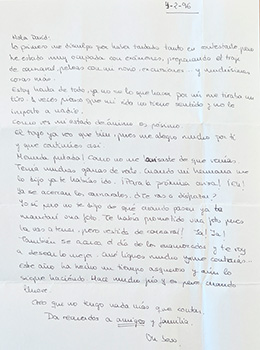 9-2-96
Hola David:
Lo primero me disculpo por haber tardado tanto en contestarte pero
he estado muy ocupada con exámenes, preparando el traje
de carnaval, peleas con mi novio, excursiones y muchísimas
cosas más.
Estoy harta de todo ya no se lo que hacer, por mi me tiraba un
tiro. A veces pienso que mi vida no tiene sentido y no le
importo a nadie.
Como ves mi estado de ánimo es pésimo.
El traje ya veo que bien, pues me alegro mucho por ti
y que continúes así
Menuda putada! Como no me avisaste de que venías.
Tenía muchas ganas de verte. Cuando mi hermana me
lo dijo ya te habías ido. ¡Para la próxima avisa! ¡Eh!
Ya se acercan los carnavales. ¿Te vas a disfrazar?
Yo si pero no se de que cuando pasen ya te
mandaré una foto. Te había prometido una foto pues
la vas a tener, pero vestida de carnaval! ¡Ja! ¡Ja!
También se acerca el día de los enamorados y te voy
a desear lo mejor. Aquí llueve mucho
este año ha hecho un tiempo asqueroso y aún lo
sigue haciendo. Hace mucho frío y es peor cuando
llueve.
Creo que no tengo nada más que contar.
Da recuerdos a amigos y familia
Un beso